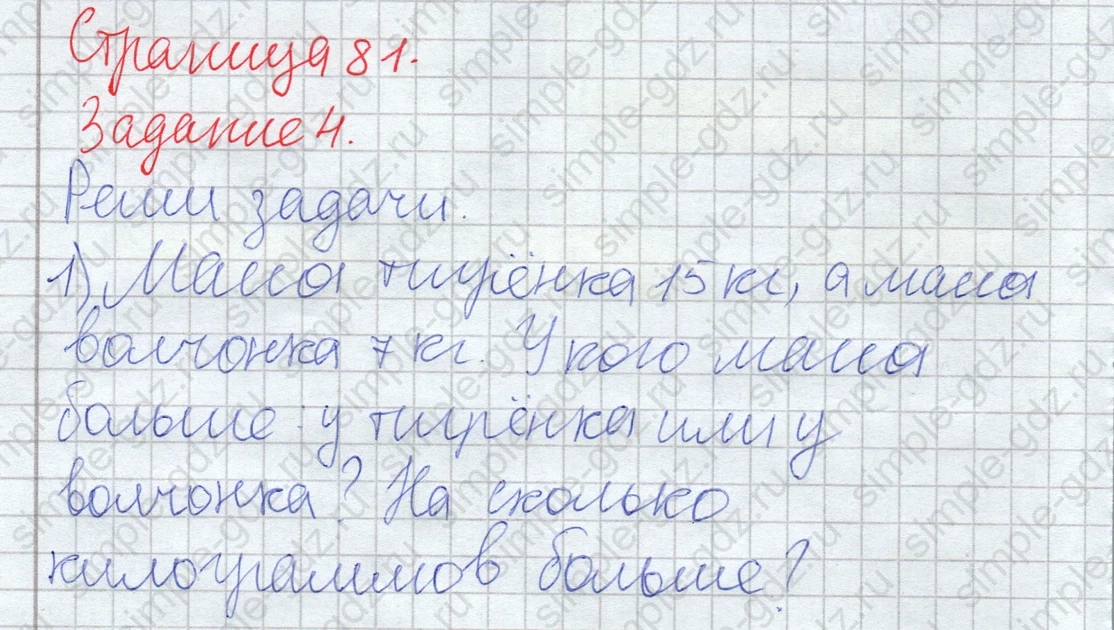 Страница 81.
Задание 4.
Реши задачи.
1) Масса тигрёнка 15 кг, а масса
волчонка 7 кг. У кого масса
больше: у тигрёнка или у
волчонка? На сколько
килограммов больше?